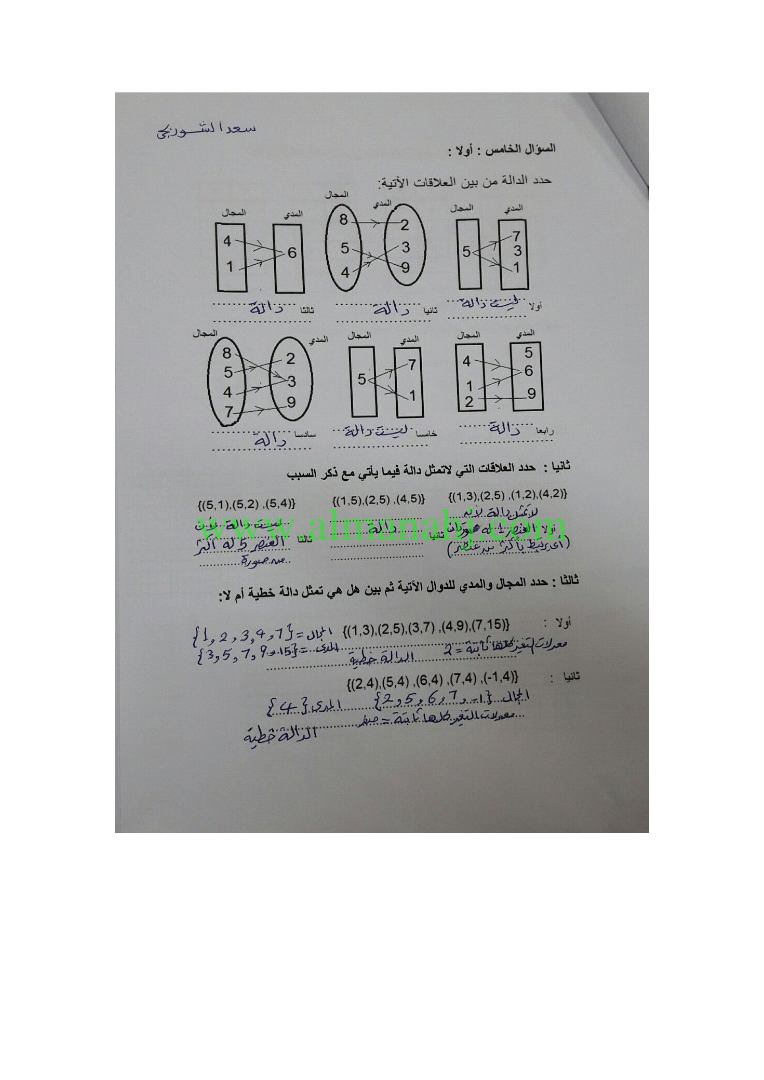 سعد الشوربجى
السؤال الخامس : أولا :
حدد الدالة من بين العلاقات الأتية:
المجال المدي المجال المدي المجال المدي
5 7 3 1
8 5 4 2 3 9
4 1 6
أولا ليست دالة ثانيا دالة ثالثا دالة
المجال المدي المجال المدي المجال المدي
4 1 2 5 6 9
5 7 1
8 5 4 7 2 3 9
رابعا دالة خامسا ليست دالة سادسا دالة
ثانيا : حدد العلاقات التي لاتمثل دالة فيما يأتي مع ذكر السبب
{(1,3),(2,5) ,(1,2),(4,2)} {(1,5),(2,5) ,(4,5)} {(5,1),(5,2) ,(5,4)}
لا تمثل دالة لأنه
أولا العنصر 1 له صورتان
(أى يرتبط بأكثر من عنصر)
ثانيا دالة
ليست دالة لأن
ثالثا العنصر 5 له أكثر
من صورة
www.almanahj.com
ثالثا : حدد المجال والمدي للدوال الآتية ثم بين هل هي تمثل دالة خطية أم لا:
أولا : {(1,3),(2,5),(3,7) ,(4,9),(7,15)} المجال = {1, 2, 3, 4, 7}
المدى = {3, 5, 7, 9, 15}
معدلات التغير كلها ثابتة = 2 الدالة خطية
ثانيا : {(2,4),(5,4) ,(6,4) ,(7,4) ,(-1,4)}
المجال {2, 5, 6, 7, -1} المدى {4}
معدلات التغير كلها ثابتة = صفر الدالة خطية